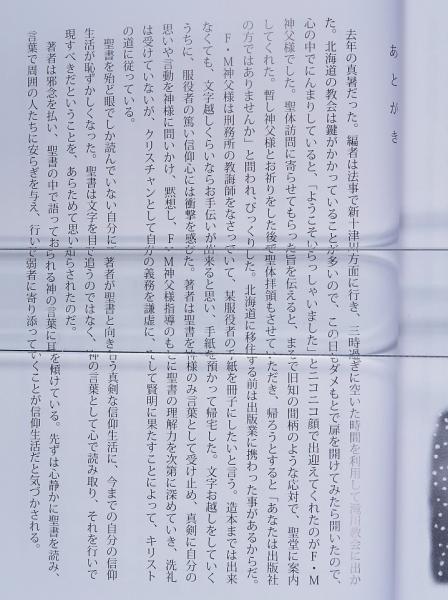 あとがき
去年の真暑だった。編者は法事で新十津川方面に行き、三時過ぎに空いた時間を利用して滝川教会に出か
た。北海道の教会は鍵がかかっていることが多いので、この日もダメもとで扉を開けてみたら開いたので、
心の中でにんまりしていると、「ようこそいらっしゃいました」とニコニコ顔で出迎えてくれたのがF・M
神父様でした。聖体訪問に寄らせてもらった旨を伝えると、まるで旧知の間柄のような応対で、聖堂に案内
してくれた。暫し神父様とお祈りをした後で聖体拝領もさせていただき、帰ろうとすると「あなたは出版社
の方ではありませんか」と問われ、びっくりした。北海道に移住する前は出版業に携わった事があるからだ。
F・M神父様は刑務所の教誨師をなさっていて、某服役者の手紙を冊子にしたいと言う。造本までは出来
なくても、文字越しくらいならお手伝いが出来ると思い、手紙を預かって帰宅した。文字お越しをしていく
うちに、服役者の篤い信仰心には衝撃を感じた。著者は聖書を神様のみ言葉として受け止め、真剣に自分の
思いや言動を神様に問いかけ、黙想し、F・M神父様指導のもとに聖書の理解力を次第に深めていき、洗礼
は受けていないが、クリスチャンとして自分の義務を謙虚に、そして賢明に果たすことによって、キリスト
の道に従っている。
聖書を殆ど眼でしか読んでいない自分に、著者が聖書と向き合う真剣な信仰生活に、今までの自分の信仰
生活が恥ずかしくなった。聖書は文字を目で追うのではなく、神の言葉として心で読み取り、それを行いで
現すべきだということを、あらためて思い知らされたのだ。
著者は邪念を払い、聖書の中で語っておられる神の言葉に耳を傾けている。先ずは心静かに聖書を読み、
言葉で周囲の人たちに安らぎを与え、行いで弱者に寄り添っていくことが信仰生活だと気づかされる。